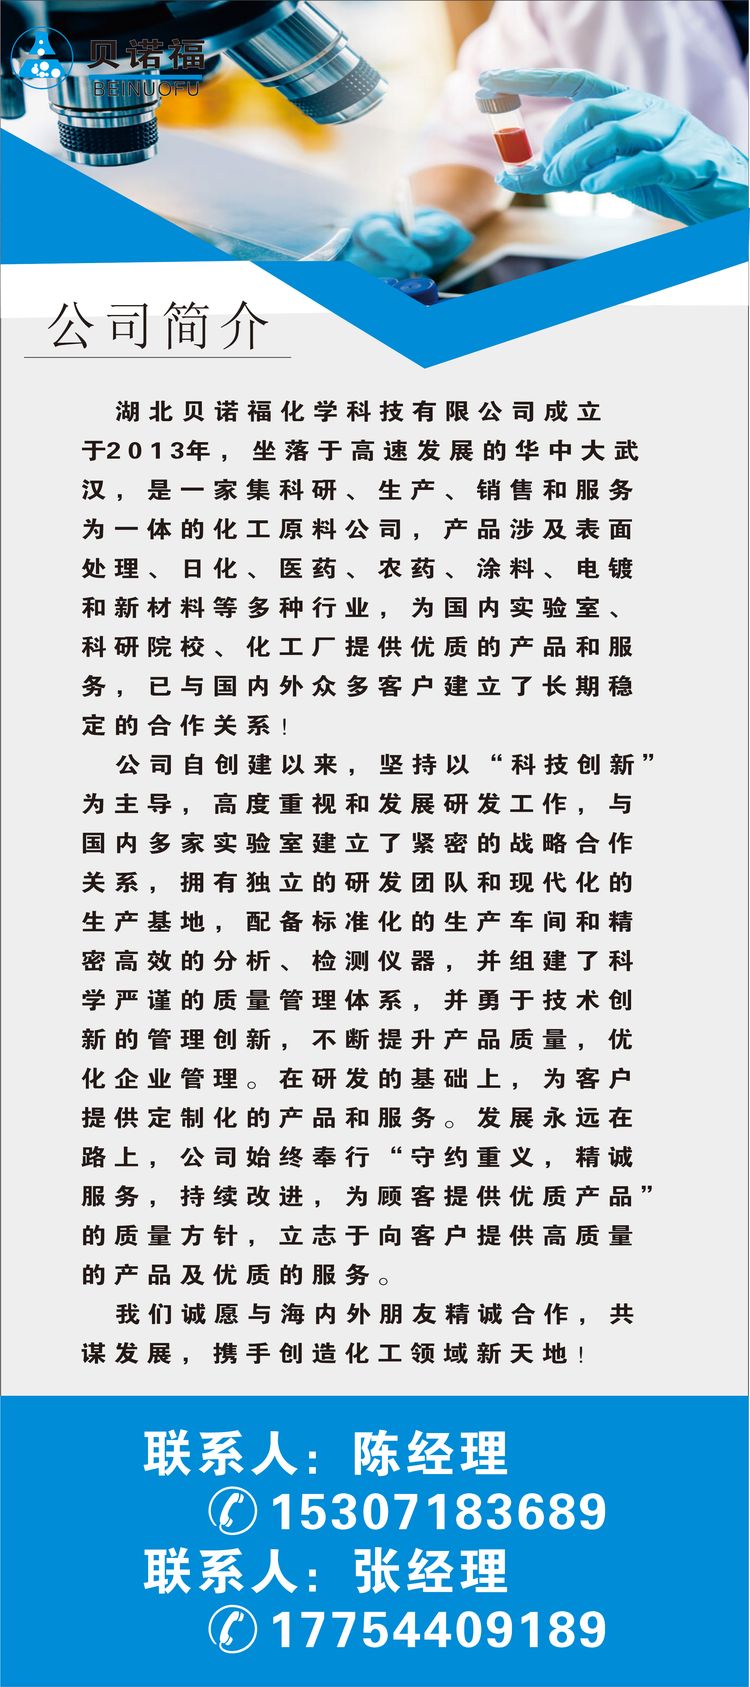 贝诺福
BEINUOFU
公司简介
湖北贝诺福化学科技有限公司成立
于2013年，坐落于高速发展的华中大武
汉，是一家集科研、生产、销售和服务
为一体的化工原料公司，产品涉及表面
处理、日化、医药、农药、涂料、电镀
和新材料等多种行业，为国内实验室、
科研院校、化工厂提供优质的产品和服
务，已与国内外众多客户建立了长期稳
定的合作关系！
公司自创建以来，坚持以“科技创新”
为主导，高度重视和发展研发工作，与
国内多家实验室建立了紧密的战略合作
关系，拥有独立的研发团队和现代化的
生产基地，配备标准化的生产车间和精
密高效的分析、检测仪器，并组建了科
学严谨的质量管理体系，并勇于技术创
新的管理创新，不断提升产品质量，优
化企业管理。在研发的基础上，为客户
提供定制化的产品和服务。发展永远在
路上，公司始终奉行“守约重义，精诚
服务，持续改进，为顾客提供优质产品”
的质量方针，立志于向客户提供高质量
的产品及优质的服务。
我们诚愿与海内外朋友精诚合作，共
谋发展，携手创造化工领域新天地！
联系人：陈经理
15307183689
联系人：张经理
17754409189